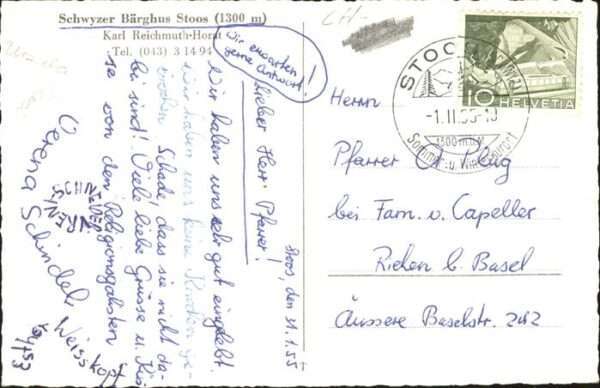 Schwyzer Bärghus Stoos (1300 m)
Karl Reichmuth-Horat
Tel. (043) 3 14 94
Wir erwarten
gerne Antwort!
Stoos, den 31.1.55
Lieber Herr Pfarrer!
Wir haben uns sehr gut eingelebt.
Wir haben uns keine Knochen ge-
brochen. Schade, dass sie nicht da-
bei sind! Viele liebe Grüsse u. Küs-
se von den Religionsgästen
Verena Schindel
Weisskopf
SCHNEIDER
CH-
STOOS
-1.II.55-10
1300 m.ü.M
Sommer- u. Winterkurort
10 HELVETIA
Herrn
Pfarrer O. Plüg
bei Fam. v. Capeller
Riehen b. Basel
Äussere Baselstr. 242